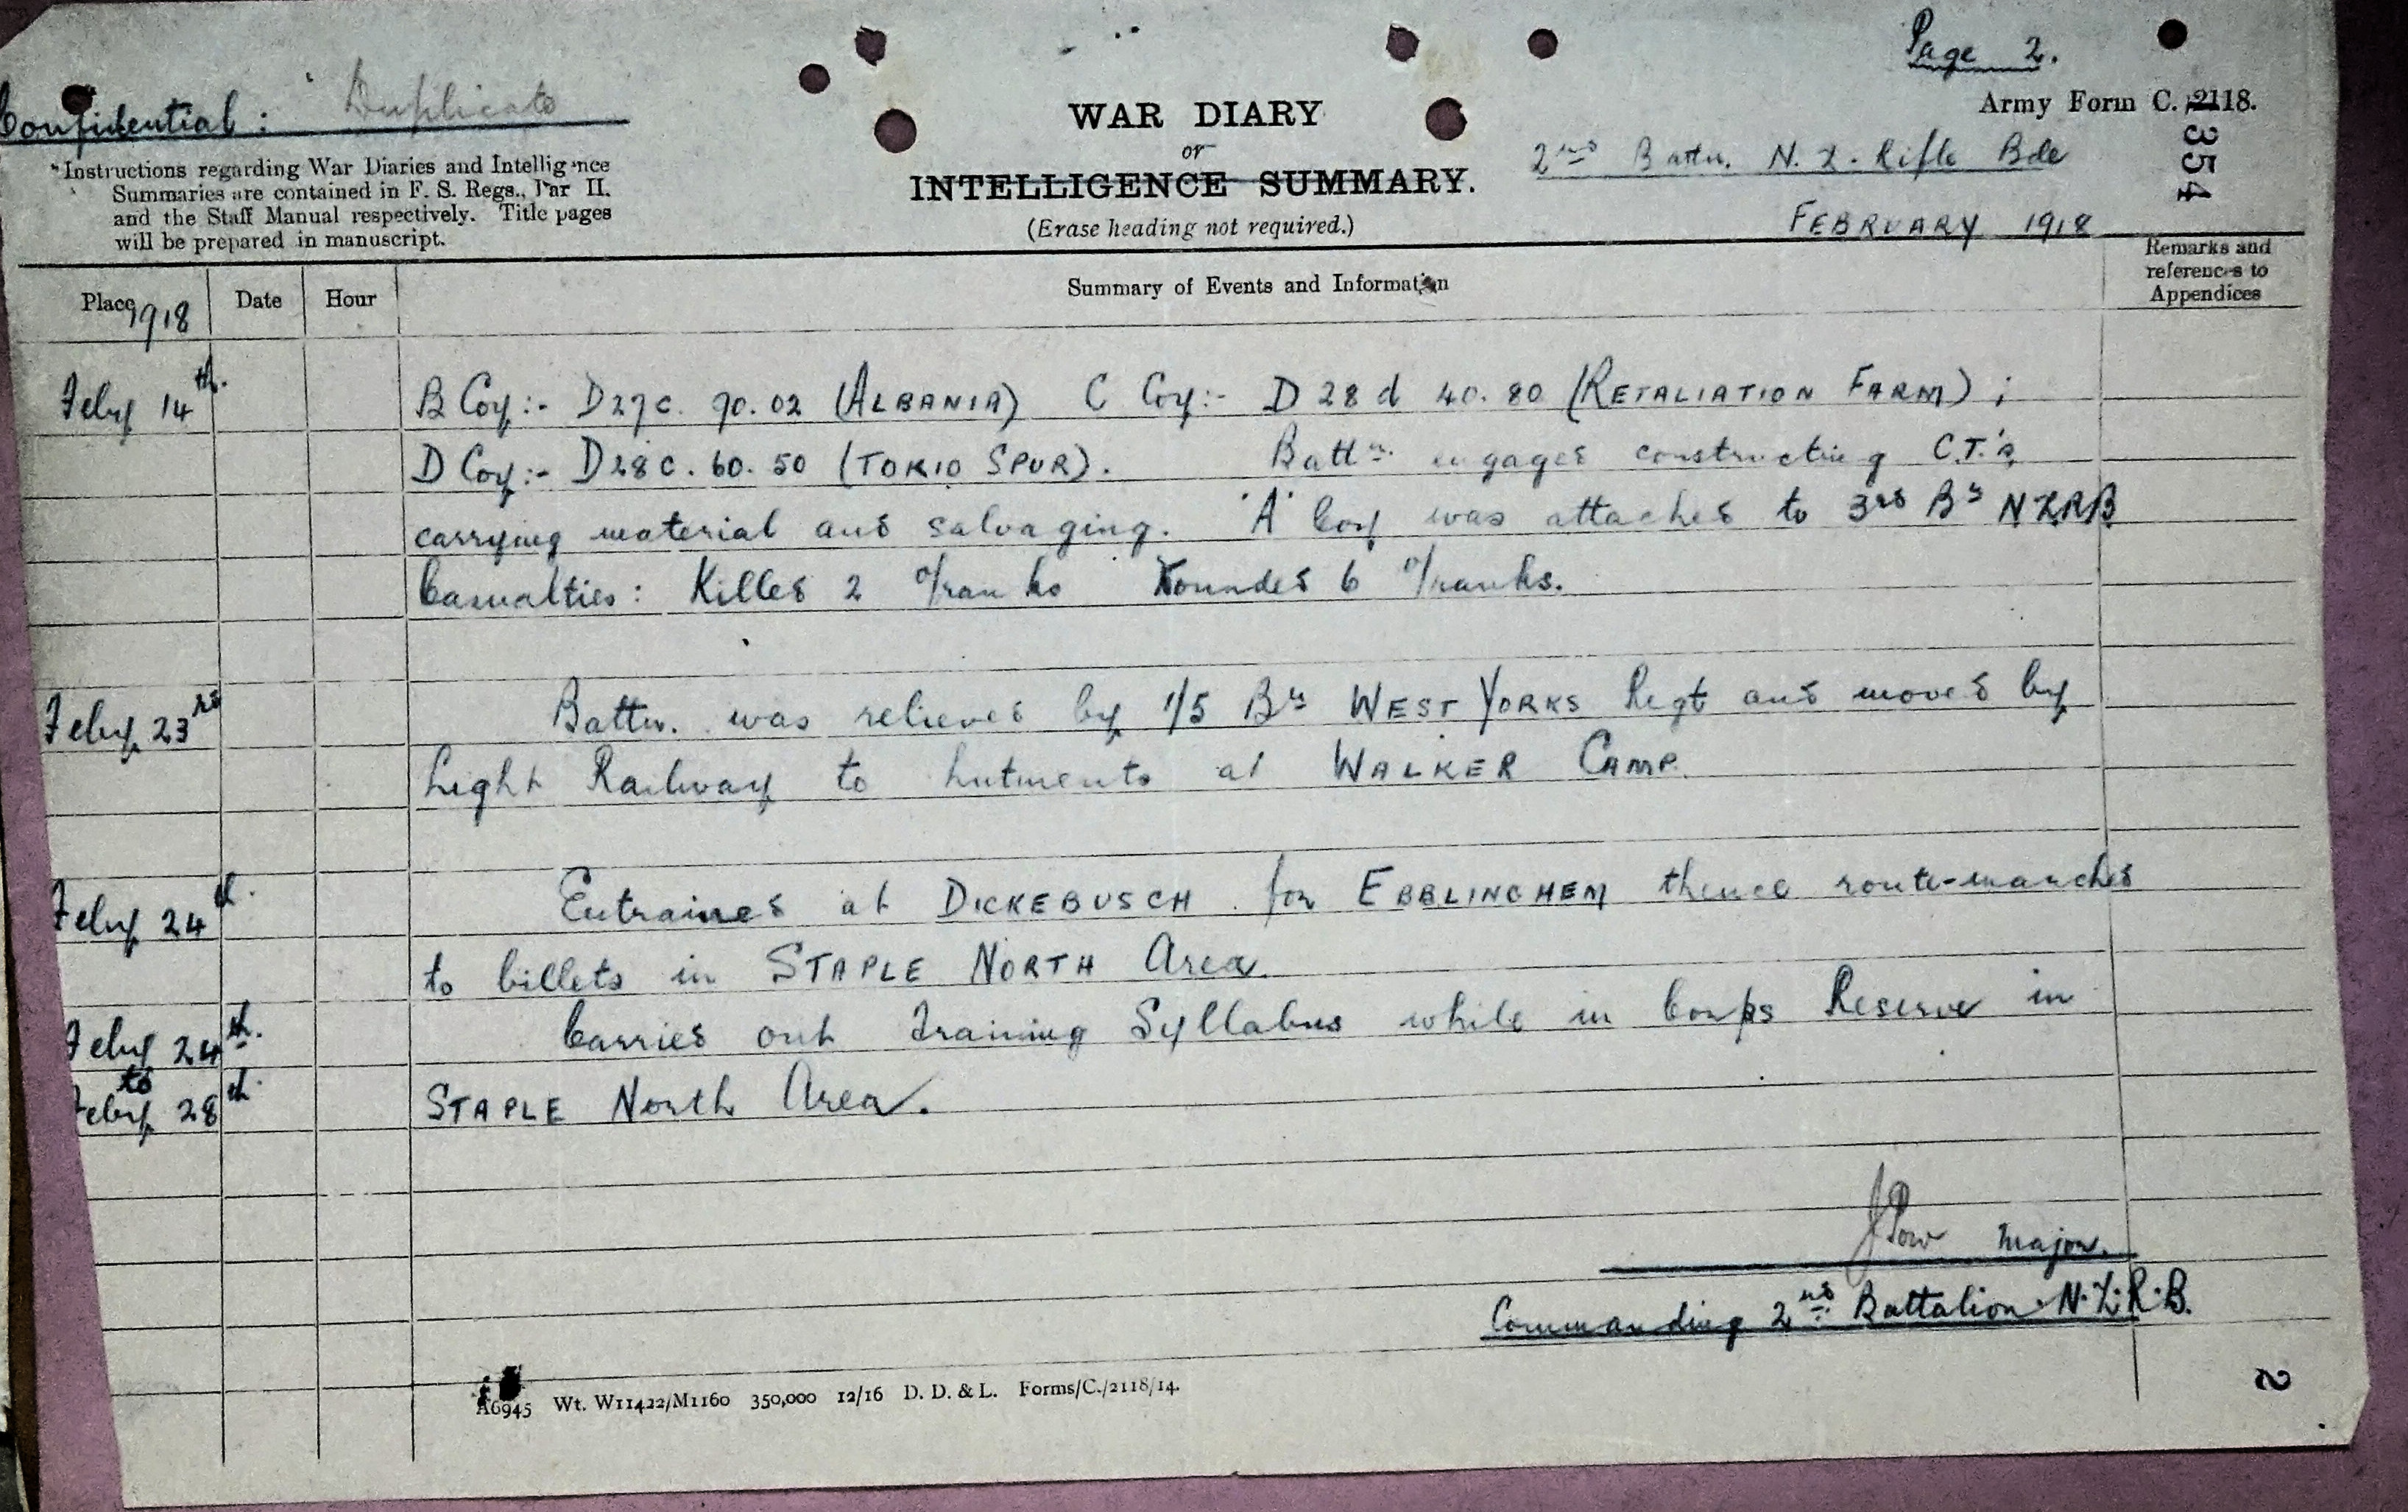 Page 2.
Confidential : Duplicate
Army Form C. 2118.
1354
WAR DIARY
or
INTELLIGENCE SUMMARY.
(Erase heading not required.)
2nd Battn. N.Z. Rifle Bde
FEBRUARY 1918
*Instructions regarding War Diaries and Intelligence
Summaries are contained in F. S. Regs., Par II.
and the Staff Manual respectively. Title pages
will be prepared in manuscript.
Place Date Hour Summary of Events and Information Remarks and references to Appendices
1918
Feby 14th. B Coy:- D27c. 90.02 (ALBANIA) C Coy:- D 28 d 40.80 (RETALIATION FARM) ;
D Coy:- D28c. 60. 50 (TOKIO SPUR). Battn. engaged constructing C.T.'s
carrying material and salvaging. 'A' Coy was attached to 3rd Bn NZRB
Casualties: Killed 2 o/ranks Wounded 6 o/ranks.
Feby 23rd Battn. was relieved by 1/5 Bn WEST YORKS Regt and moved by
Light Railway to hutments at WALKER CAMP.
Feby 24th. Entrained at DICKEBUSCH for EBBLINGHEM thence route-marched
to billets in STAPLE NORTH Area.
Feby 24th. Carried out Training Syllabus while in Corps Reserve in
to
Feby 28th. STAPLE North Area.
JPow Major.
Commanding 2nd Battalion N.Z.R.B.
2
A6945 Wt. W11422/M1160 350,000 12/16 D. D. & L. Forms/C./2118/14.